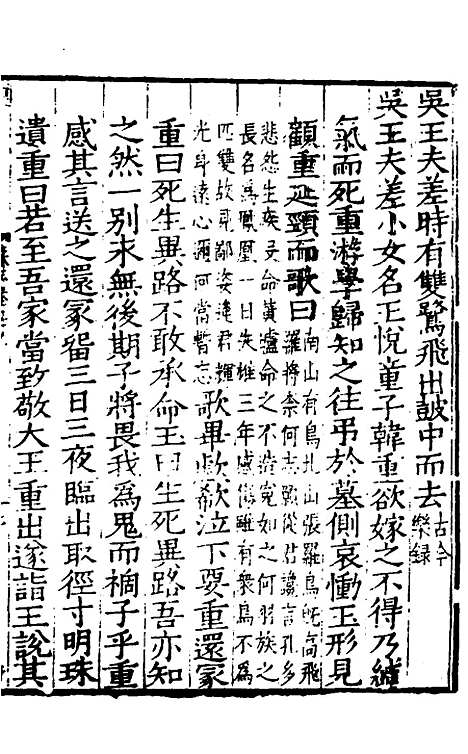 吳王夫差時有雙鷺飛出鼓中而去古今
樂録
吳王夫差小女名玉悅童子韓重欲嫁之不得乃結
氣而死重游學歸知之往弔於墓側哀慟玉形見
顧重延頸而歌曰南山有鳥北山張羅鳥既高飛
羅將柰何志願從君讒言孔多
悲怨生疾殁命黄壚命之不造寃如之何羽族之
長名爲鳳凰一日失雄三年感傷雖有衆鳥不爲
匹雙故見鄙姿逢君輝
光身遠心邇何當暫忘歌畢歔欷泣下要重還冢
重曰死生異路不敢承命玉曰生死異路吾亦知
之然一别未無後期子將畏我爲鬼而禍子乎重
感其言送之還冢畱三日三夜臨出取徑寸明珠
遺重曰若至吾家當致敬大王重出遂詣王說其